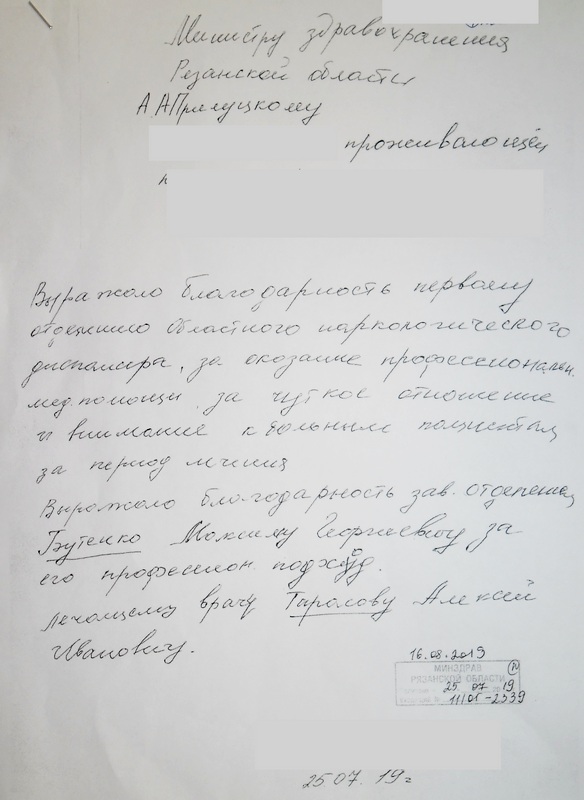 Министру здравохранения
Резанской области
А.А Прилуцкому
проживающей
Выражаю благодарность первому
отделению областного наркологического
диспансера, за оказание профессионален.
мед.помощи, за чуткое отношение
и внимание к больным пациентам
за период лечения
Выражаю благодарность зав. отделением
Бутенко Максиму Георгиевичу за
его професион. подход.
лечащему врачу Алексей
Ивановичу.
16.08.2019
МИНЗДРАВ
РЯЗАНСКОЙ ОБЛАСТИ
25 07 2019
11/01-2339
25.07.19г